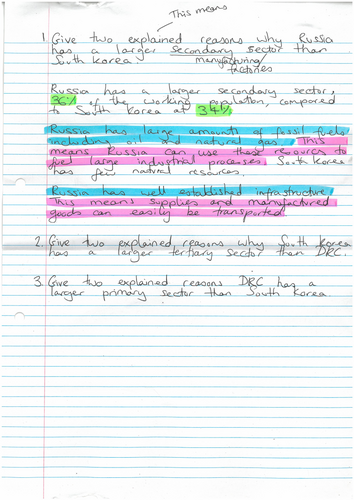 This means
1. Give two explained reasons why Russia
has a larger secondary sector than
South Korea
manufacturing/
factories
Russia has a larger secondary sector,
36% of the working population, compared
to South Korea at 34%.
Russia has large amounts of fossil fuels
including oil and natural gas. This
means Russia can use these resources to
fuel large industrial processes. South Korea
has few natural resources.
Russia has well established infrastructure.
This means supplies and manufactured
goods can easily be transported.
2. Give two explained reasons why South Korea
has a larger tertiary sector than DRC.
3. Give two explained reasons DRC has a
larger primary sector than South Korea